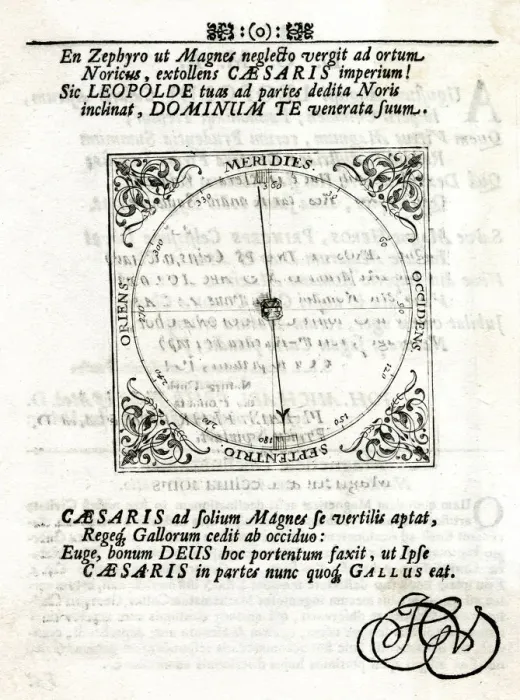 :(o):
En Zephyro ut Magnes neglecto vergit ad ortum
Noricus, extollens CÆSARIS imperium!
Sic LEOPOLDE tuas ad partes dedita Noris
inclinat, DOMINUM TE venerata suum.
MERIDIES.
360
330
30
300
60
ORIENS.
OCCIDENS.
270
90
240
120
210
150
180
SEPTENTRIO
CÆSARIS ad solium Magnes se vertilis aptat,
Regeq́; Gallorum cedit ab occiduo:
Euge, bonum DEUS hoc portentum faxit, ut Ipse
CÆSARIS in partes nunc quoq́; GALLUS eat.